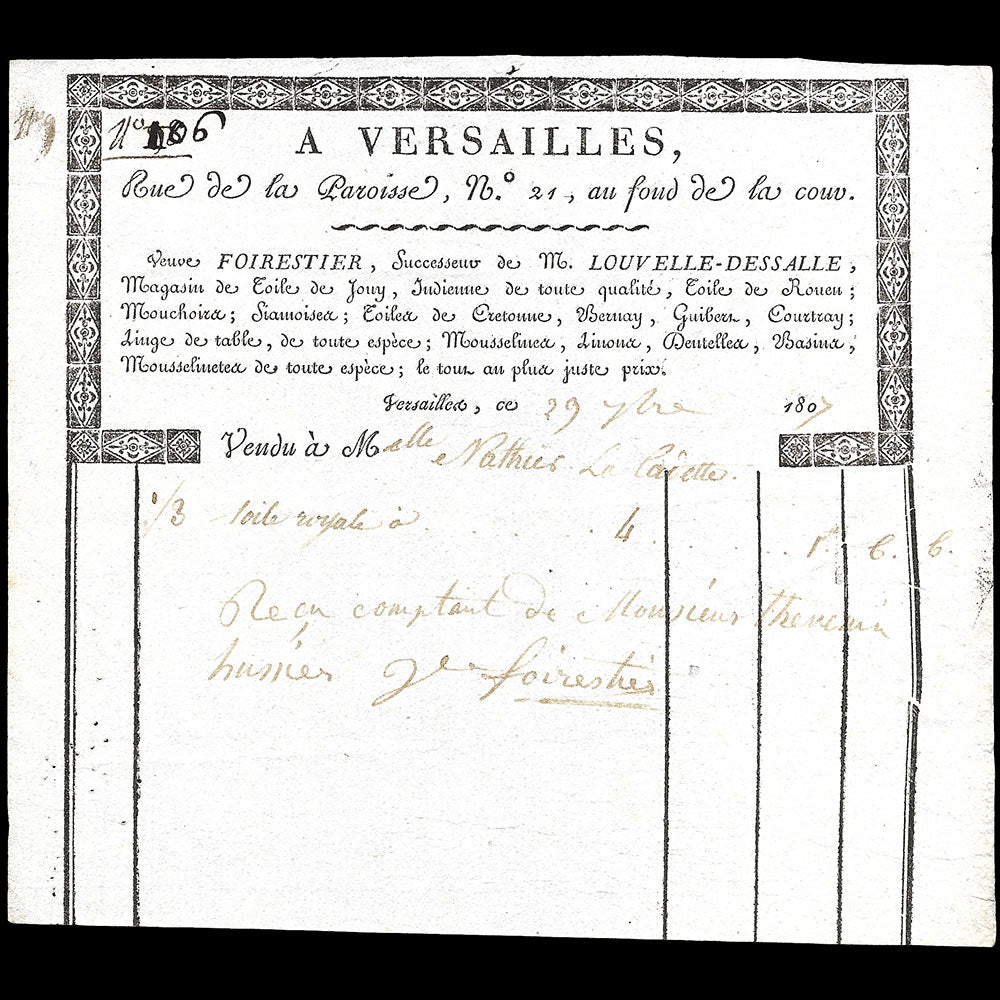 N.° 9
N.° 186
A VERSAILLES,
Rue de la Paroisse, N.° 21, au fond de la cour.
Veuve FOIRESTIER, Successeur de M. LOUVELLE-DESSALLE,
Magasin de Toile de Jouy, Indienne de toute qualité, Toile de Rouen;
Mouchoirs; Siamoises; Toiles de Cretonne, Bernay, Guibert, Courtray;
Linge de table, de toute espèce; Mousselines, Linons, Dentelles, Basins,
Mousselinetes de toute espèce; le tout au plus juste prix.
Versailles, ce 29 7bre 1807
Vendu à Melle
1/3 toile royale à 4 1 6. 6.
Reçu comptant de Monsieur Thevenin
husier Ve foirestier